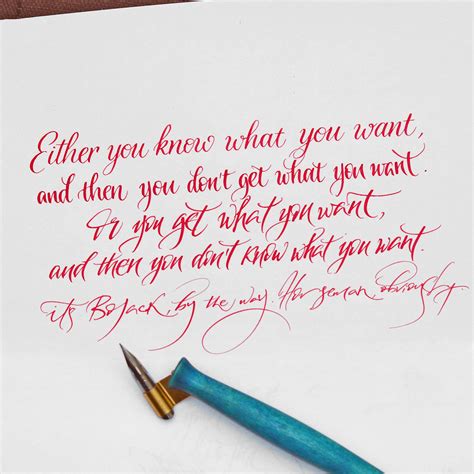 Either you know what you want,
and then you don't get what you want.
Or you get what you want,
and then you don't know what you want.
its BoJack, by the way. Horseman, obviously